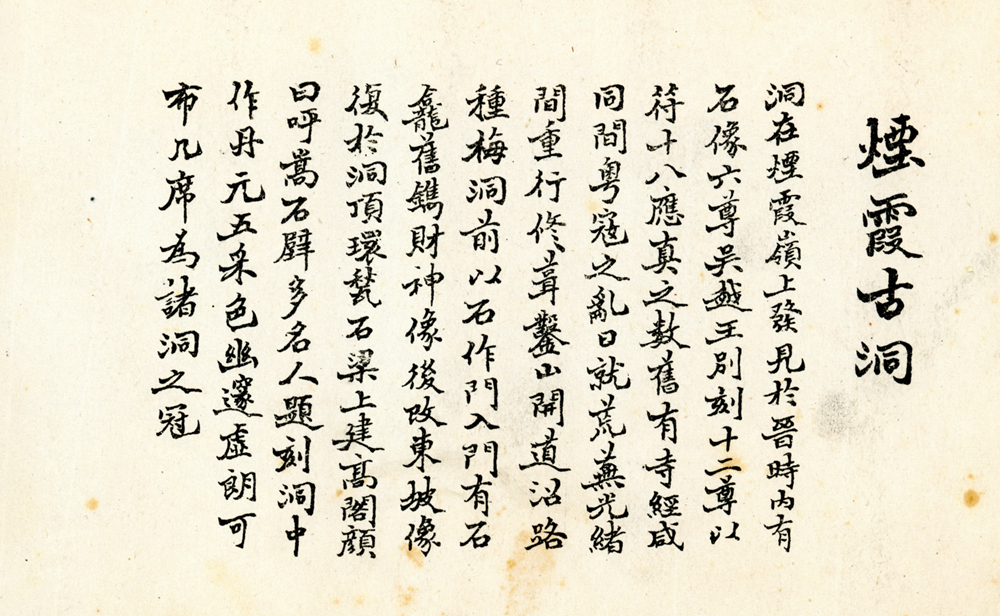 煙霞古洞
洞在煙霞嶺上發見於晉時內有
石像六尊吳越王別刻十二尊以
符十八應真之數舊有寺經咸
同間粵寇之亂日就荒蕪光緒
間重行修葺鑿山開道沿路
種梅洞前以石作門入門有石
龕舊鐫財神像後改東坡像
復於洞頂環甃石梁上建高閣顏
曰呼嵩石壁多名人題刻洞中
作丹元五采色幽邃虛朗可
布几席為諸洞之冠